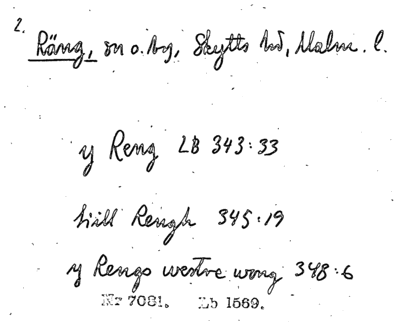 2.
Räng, sn o. by, Skytts hd, Malm. l.
y Reng LB 343:33
hiill Rengh 345:19
y Rengs westre wong 348:6
Nr 7081. Lb 1569.